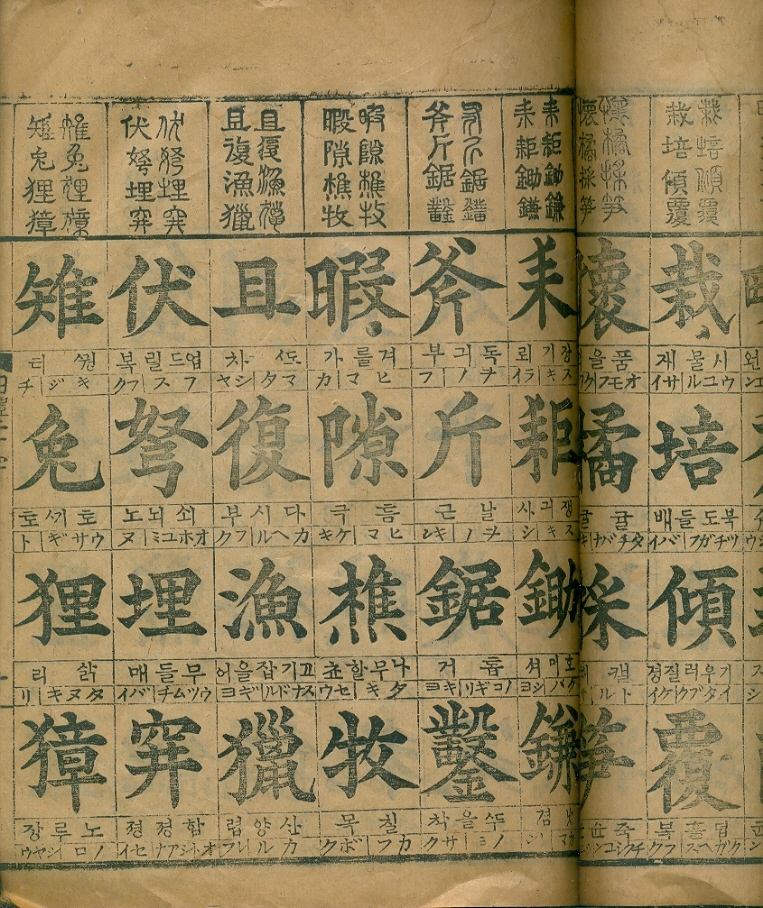 栽培傾覆
栽培傾覆
栽
시물 재
ウユル サイ
培
북도들 배
ツチガフ バイ
傾
기우러질 경
カタブク ケイ
覆
덥흘 복
フク
懷橘採笋
懷橘採笋
懷
품을
オモフ
橘
귤 귤
タチバナ
採
캘
トル
笋
죽
耒耟鋤鎌
耒耟鋤鎌
耒
장기 뢰
スキ ライ
耟
쟁긔 사
スキ シ
鋤
호미 셔
鎌
낫 겸
斧斤鋸鑿
斧斤鋸鑿
斧
독긔 부
ヲノ フ
斤
날 근
ヲノ キン
鋸
톱 거
ノコギリ キヨ
鑿
쑤을 착
ノミ サク
暇隙樵牧
暇隙樵牧
暇
겨를 가
ヒマ カ
隙
틈 극
ヒマ ケキ
樵
나무할 쵸
タキ セウ
牧
칠 목
カフ ボク
且復漁獵
且復漁獵
且
쏘 차
マタ シヤ
復
다시 부
カヘル フク
漁
고기잡을 어
スナドル ギヨ
獵
산양 렵
カル レフ
伏弩埋穽
伏弩埋穽
伏
업드릴 복
フス フク
弩
쇠뇌 노
オホユミ ヌ
埋
무들 매
ウヅム バイ
穽
함졍 졍
オトシアナ セイ
雉兔狸獐
雉兔狸獐
雉
꿩 티
キジ チ
兔
토씨 토
ウサギ ト
狸
삵 리
タヌキ リ
獐
노루 장
ノロ シヤウ